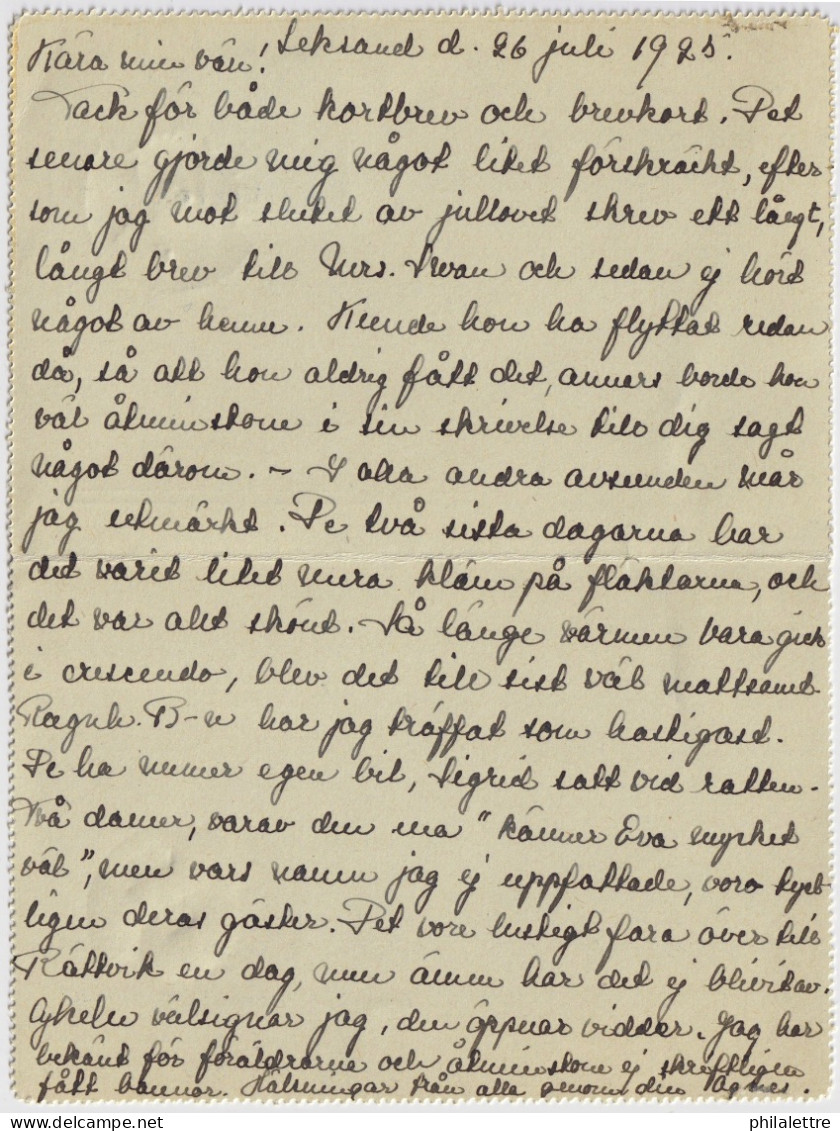 Leksand d. 26 juli 1925.
Kära min vän!
Tack för både kortbrev och brevkort. Det
senare gjorde mig något litet förskräckt, efter-
som jag mot slutet av jullovet skrev ett långt,
långt brev till Mrs. Swan och sedan ej hört
något av henne. Kunde hon ha flyttat redan
då, så att hon aldrig fått det, annars borde hon
väl åtminstone i sin skrivelse till dig sagt
något därom. – I alla andra avseenden mår
jag utmärkt. De två sista dagarna har
det varit litet mera kläm på fläktarna, och
det var allt skönt. Så länge värmen bara gick
i crescendo, blev det till sist väl mattsamt.
Ragnh. B-n har jag träffat som hastigast.
De ha numer egen bil, Sigrid satt vid ratten.
Två damer, varav den ena "känner Eva mycket
väl", men vars namn jag ej uppfattade, voro tyd-
ligen deras gäster. Det vore lustigt fara över till
Rättvik en dag, men ännu har det ej blivit av.
Cykeln välsignar jag, den öppnar vidder. Jag har
bekänt för föräldrarna och åtminstone ej skriftligen
fått bannor. Hälsningar från alla genom din Agnes.
philalettre.com